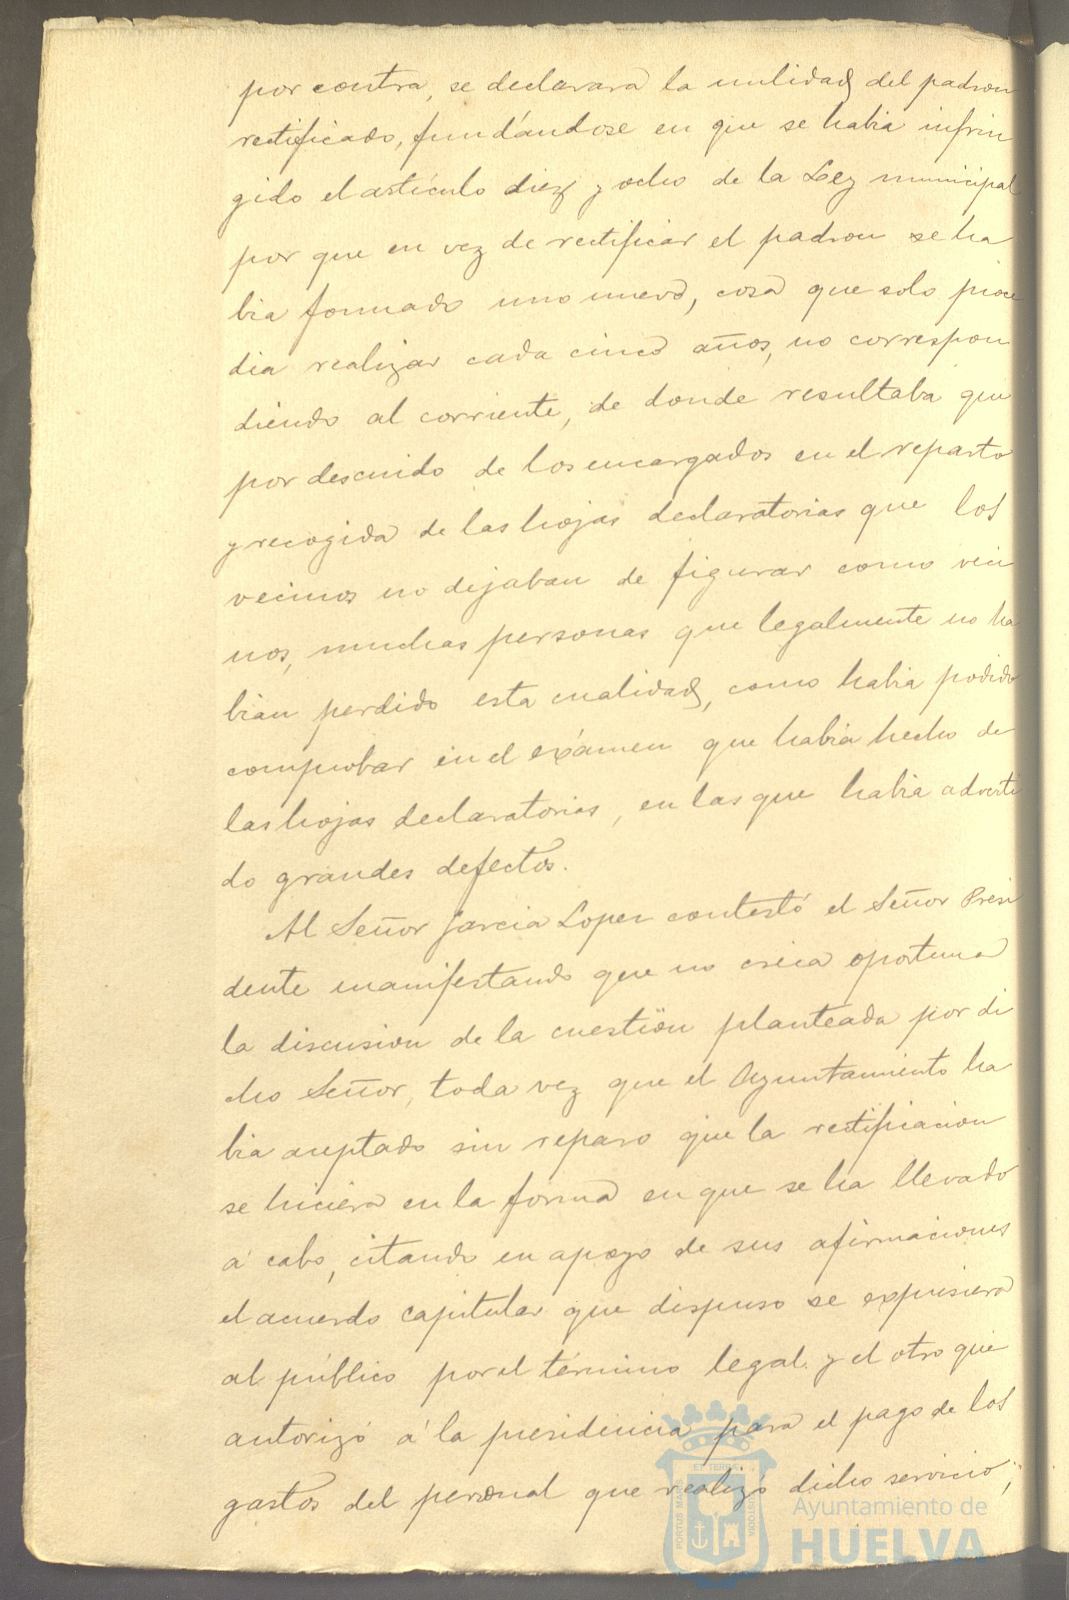 por contra, se declarara la nulidad del padron
rectificado, fundándose en que se habia infrin
gido el artículo diez y ocho de la Ley municipal
por que en vez de rectificar el padron se ha
bia formado uno nuevo, cosa que solo proce
dia realizar cada cinco años, no correspon
diendo al corriente, de donde resultaba que
por descuido de los encargados en el reparto
y recogida de las hojas declaratorias que los
vecinos no dejaban de figurar como veci
nos, muchas personas que legalmente no ha
bian perdido esta cualidad, como habia podido
comprobar en el exámen que habia hecho de
las hojas declaratorias, en las que habia adverti
do grandes defectos.
Al Señor Garcia Lopez contestó el Señor Presi
dente manifestando que no creia oportuna
la discusion de la cuestión planteada por di
cho Señor, toda vez que el Ayuntamiento ha
bia aceptado sin reparo que la rectificacion
se hiciera en la forma en que se ha llevado
á cabo, citando en apoyo de sus afirmaciones
el acuerdo capitular que dispuso se expusiera
al público por el término legal y el otro que
autorizó á la presidencia para el pago de los
gastos del personal que realizó dicho servicio;
Ayuntamiento de
HUELVA